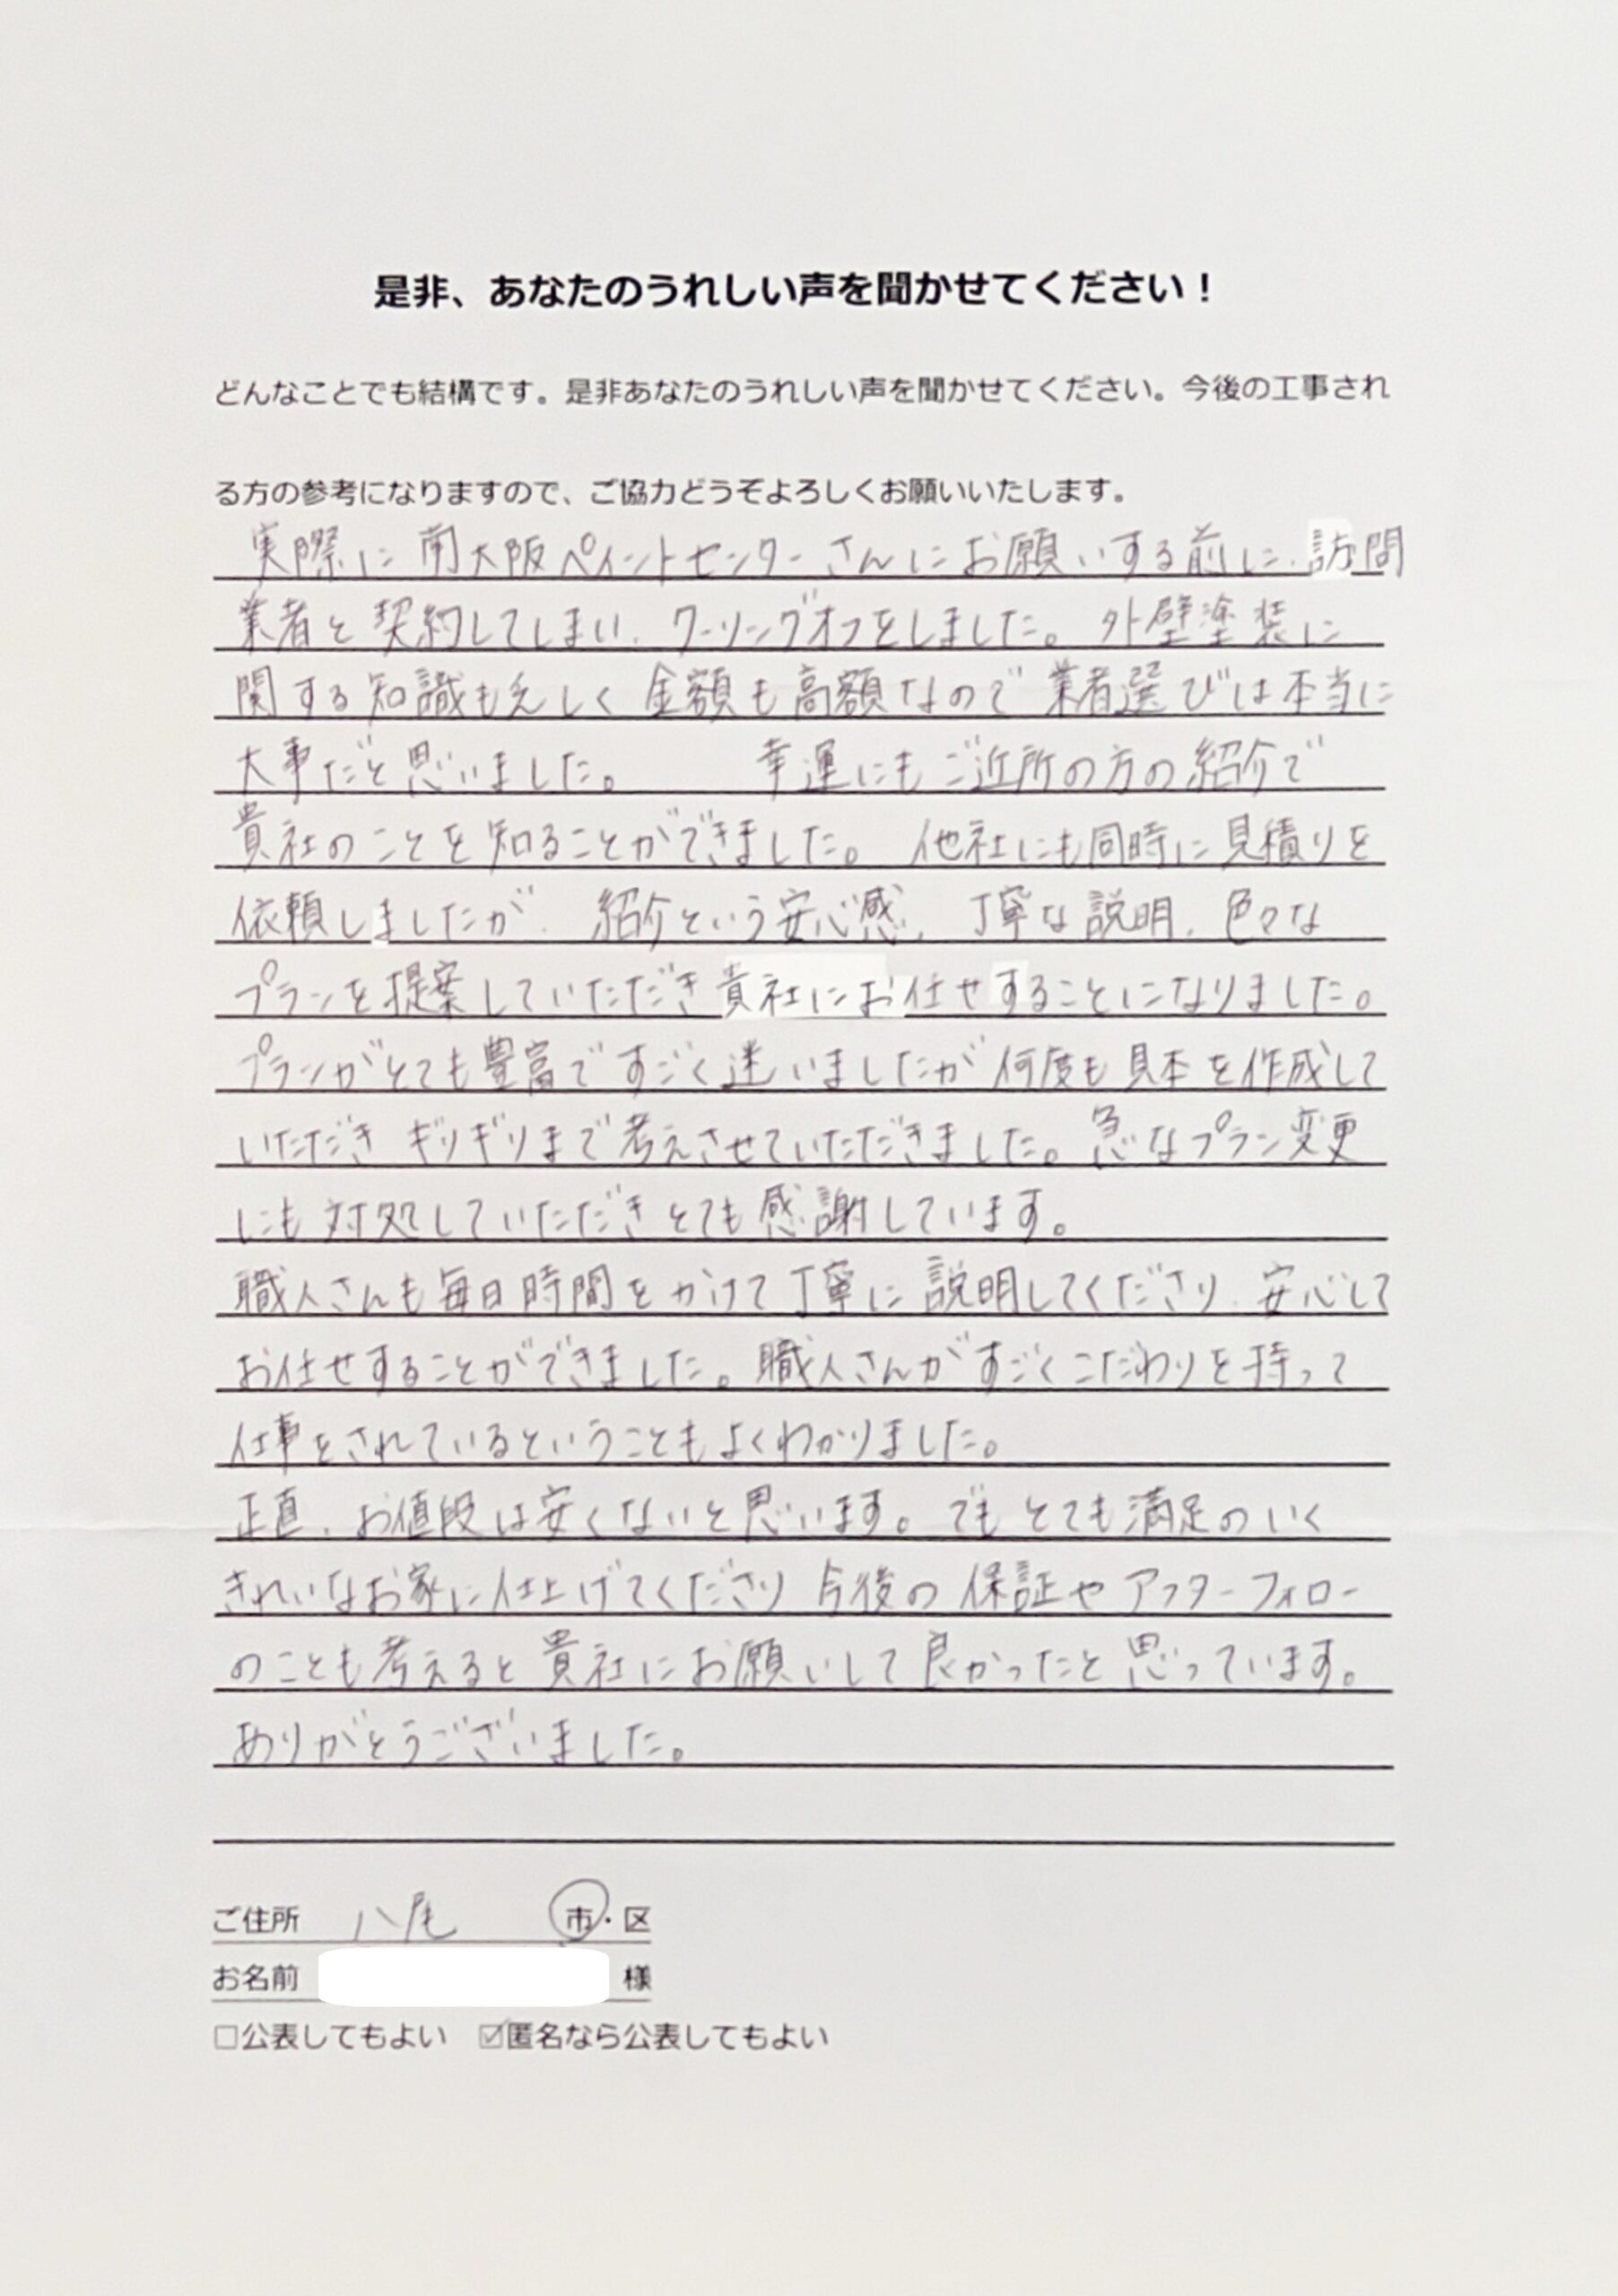 是非、あなたのうれしい声を聞かせてください！
どんなことでも結構です。是非あなたのうれしい声を聞かせてください。今後の工事され
る方の参考になりますので、ご協力どうぞよろしくお願いいたします。
実際に南大阪ペイントセンターさんにお願いする前に、訪問
業者と契約してしまい、クーリングオフをしました。外壁塗装に
関する知識も乏しく金額も高額なので業者選びは本当に
大事だと思いました。　幸運にもご近所の方の紹介で
貴社のことを知ることができました。他社にも同時に見積りを
依頼しましたが、紹介という安心感、丁寧な説明、色々な
プランを提案していただき貴社にお任せすることになりました。
プランがとても豊富ですごく迷いましたが何度も見本を作成して
いただき ギリギリまで考えさせていただきました。急なプラン変更
にも対処していただきとても感謝しています。
職人さんも毎日時間をかけて丁寧に説明してくださり、安心して
お任せすることができました。職人さんがすごくこだわりを持って
仕事をされているということもよくわかりました。
正直、お値段は安くないと思います。でもとても満足のいく
きれいなお家に仕上げてくださり今後の保証やアフターフォロー
のことも考えると貴社にお願いして良かったと思っています。
ありがとうございました。
ご住所 八尾 市・区
お名前 様
□公表してもよい ☑匿名なら公表してもよい